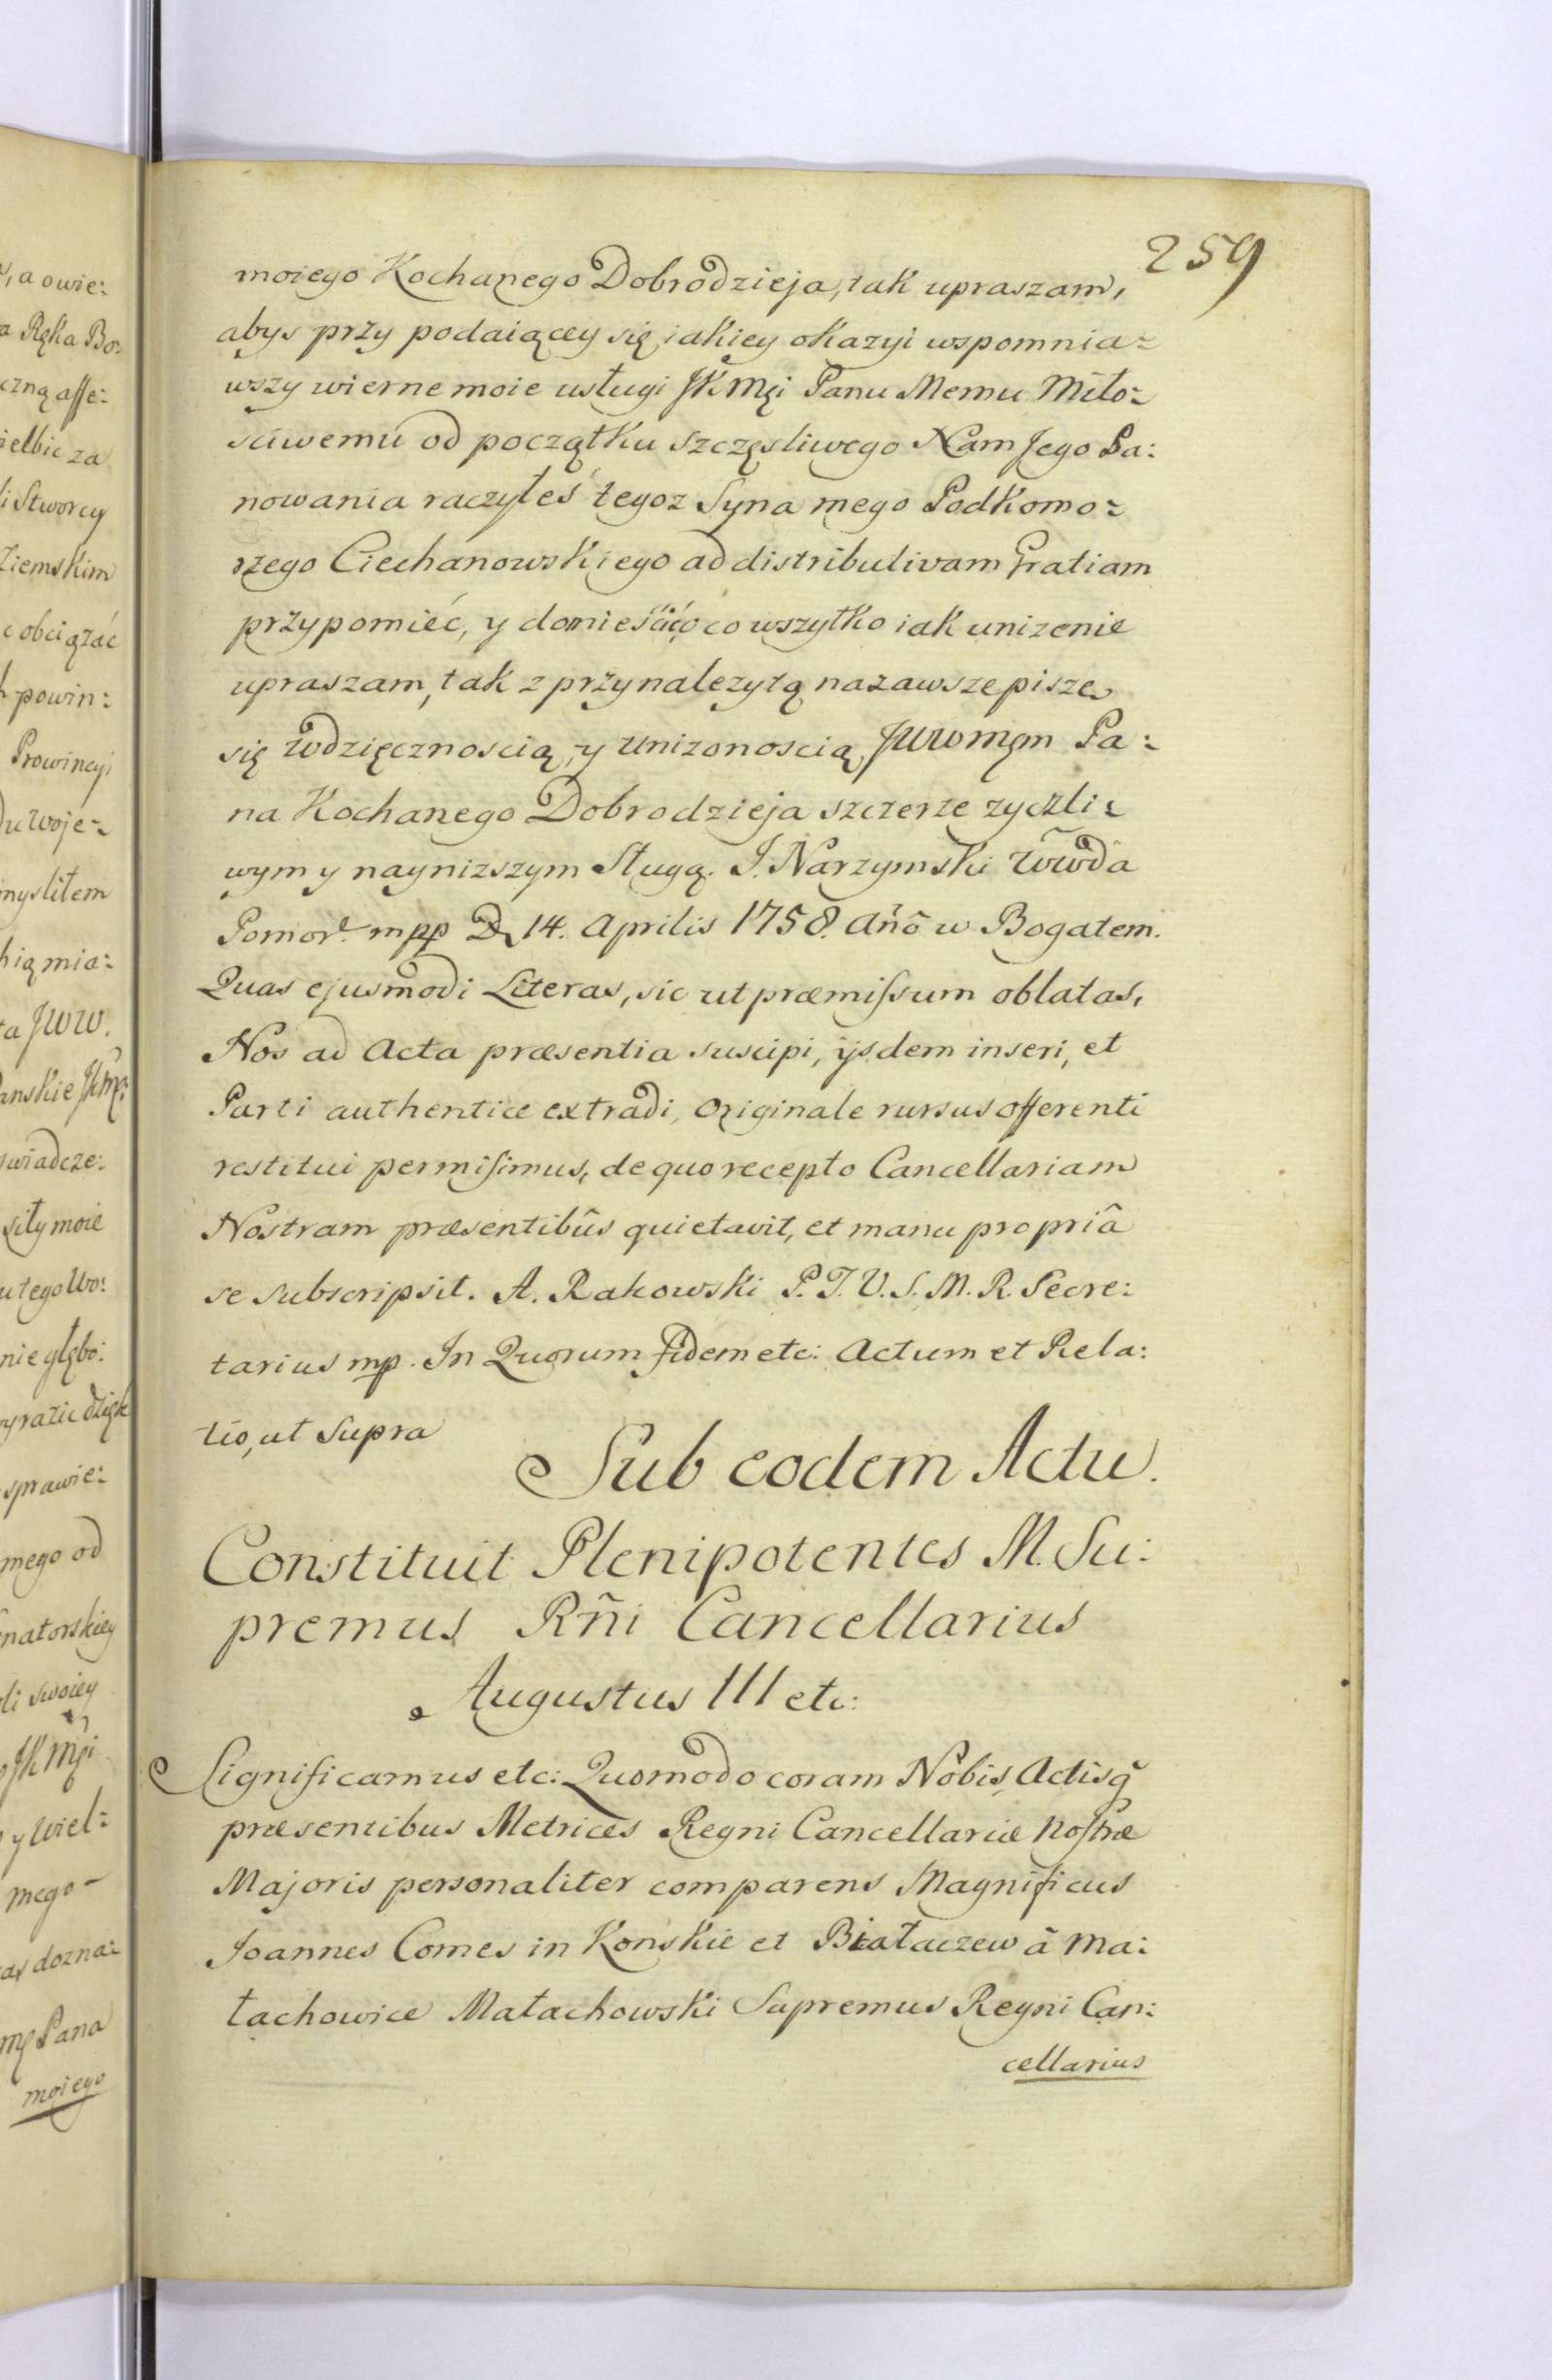 259
moiego Kochanego Dobrodzieja, tak upraszam,
abys przy podaiącey się iakiey okazyi wspomnia:
wszy wierne moie usługi JKMęi Panu Memu Miło:
sciwemu od początku szczęsliwego Nam Jego Pa:
nowania raczyłeś tegoz Syna mego Podkomo:
rzego Ciechanowskiego ad distributivam Gratiam
przypomieć, y donieść o co wszytko iak unizenie
upraszam, tak z przynalezytą nazawsze pisze
się wdzięcznoscią, y unizonoscią JWWMęm Pa:
na Kochanego Dobrodzieja szczerze zyczli:
wym y naynizszym sługą. J. Narzymski Wwda
Pomor. mpp D 14. Aprilis 1758. Añô w Bogatem.
Quas ejusmodi Literas, sic ut præmissum oblatas,
Nos ad Acta præsentia suscipi, ijsdem inseri, et
Parti authentice extradi, originale rursus offerenti
restitui permisimus, de quo recepto Cancellariam
Nostram præsentibûs quietavit, et manu propriâ
se subscripsit. A. Rakowski P.T.V.S.M.R. Secre:
tarius mp. In Quorum fidem etc: Actum et Rela:
tio, ut Supra
Sub eodem Actu.
Constituit Plenipotentes M. Su:
premus Rñi Cancellarius
Augustus III etc:
Significamus etc: Quomodo coram Nobis, Actisq̃
præsentibus Metrices Regni Cancellariæ Nostræ
Majoris personaliter comparens Magnificus
Joannes Comes in Konskie et Białaczew â Ma:
łachowice Małachowski Supremus Regni Can:
cellarius